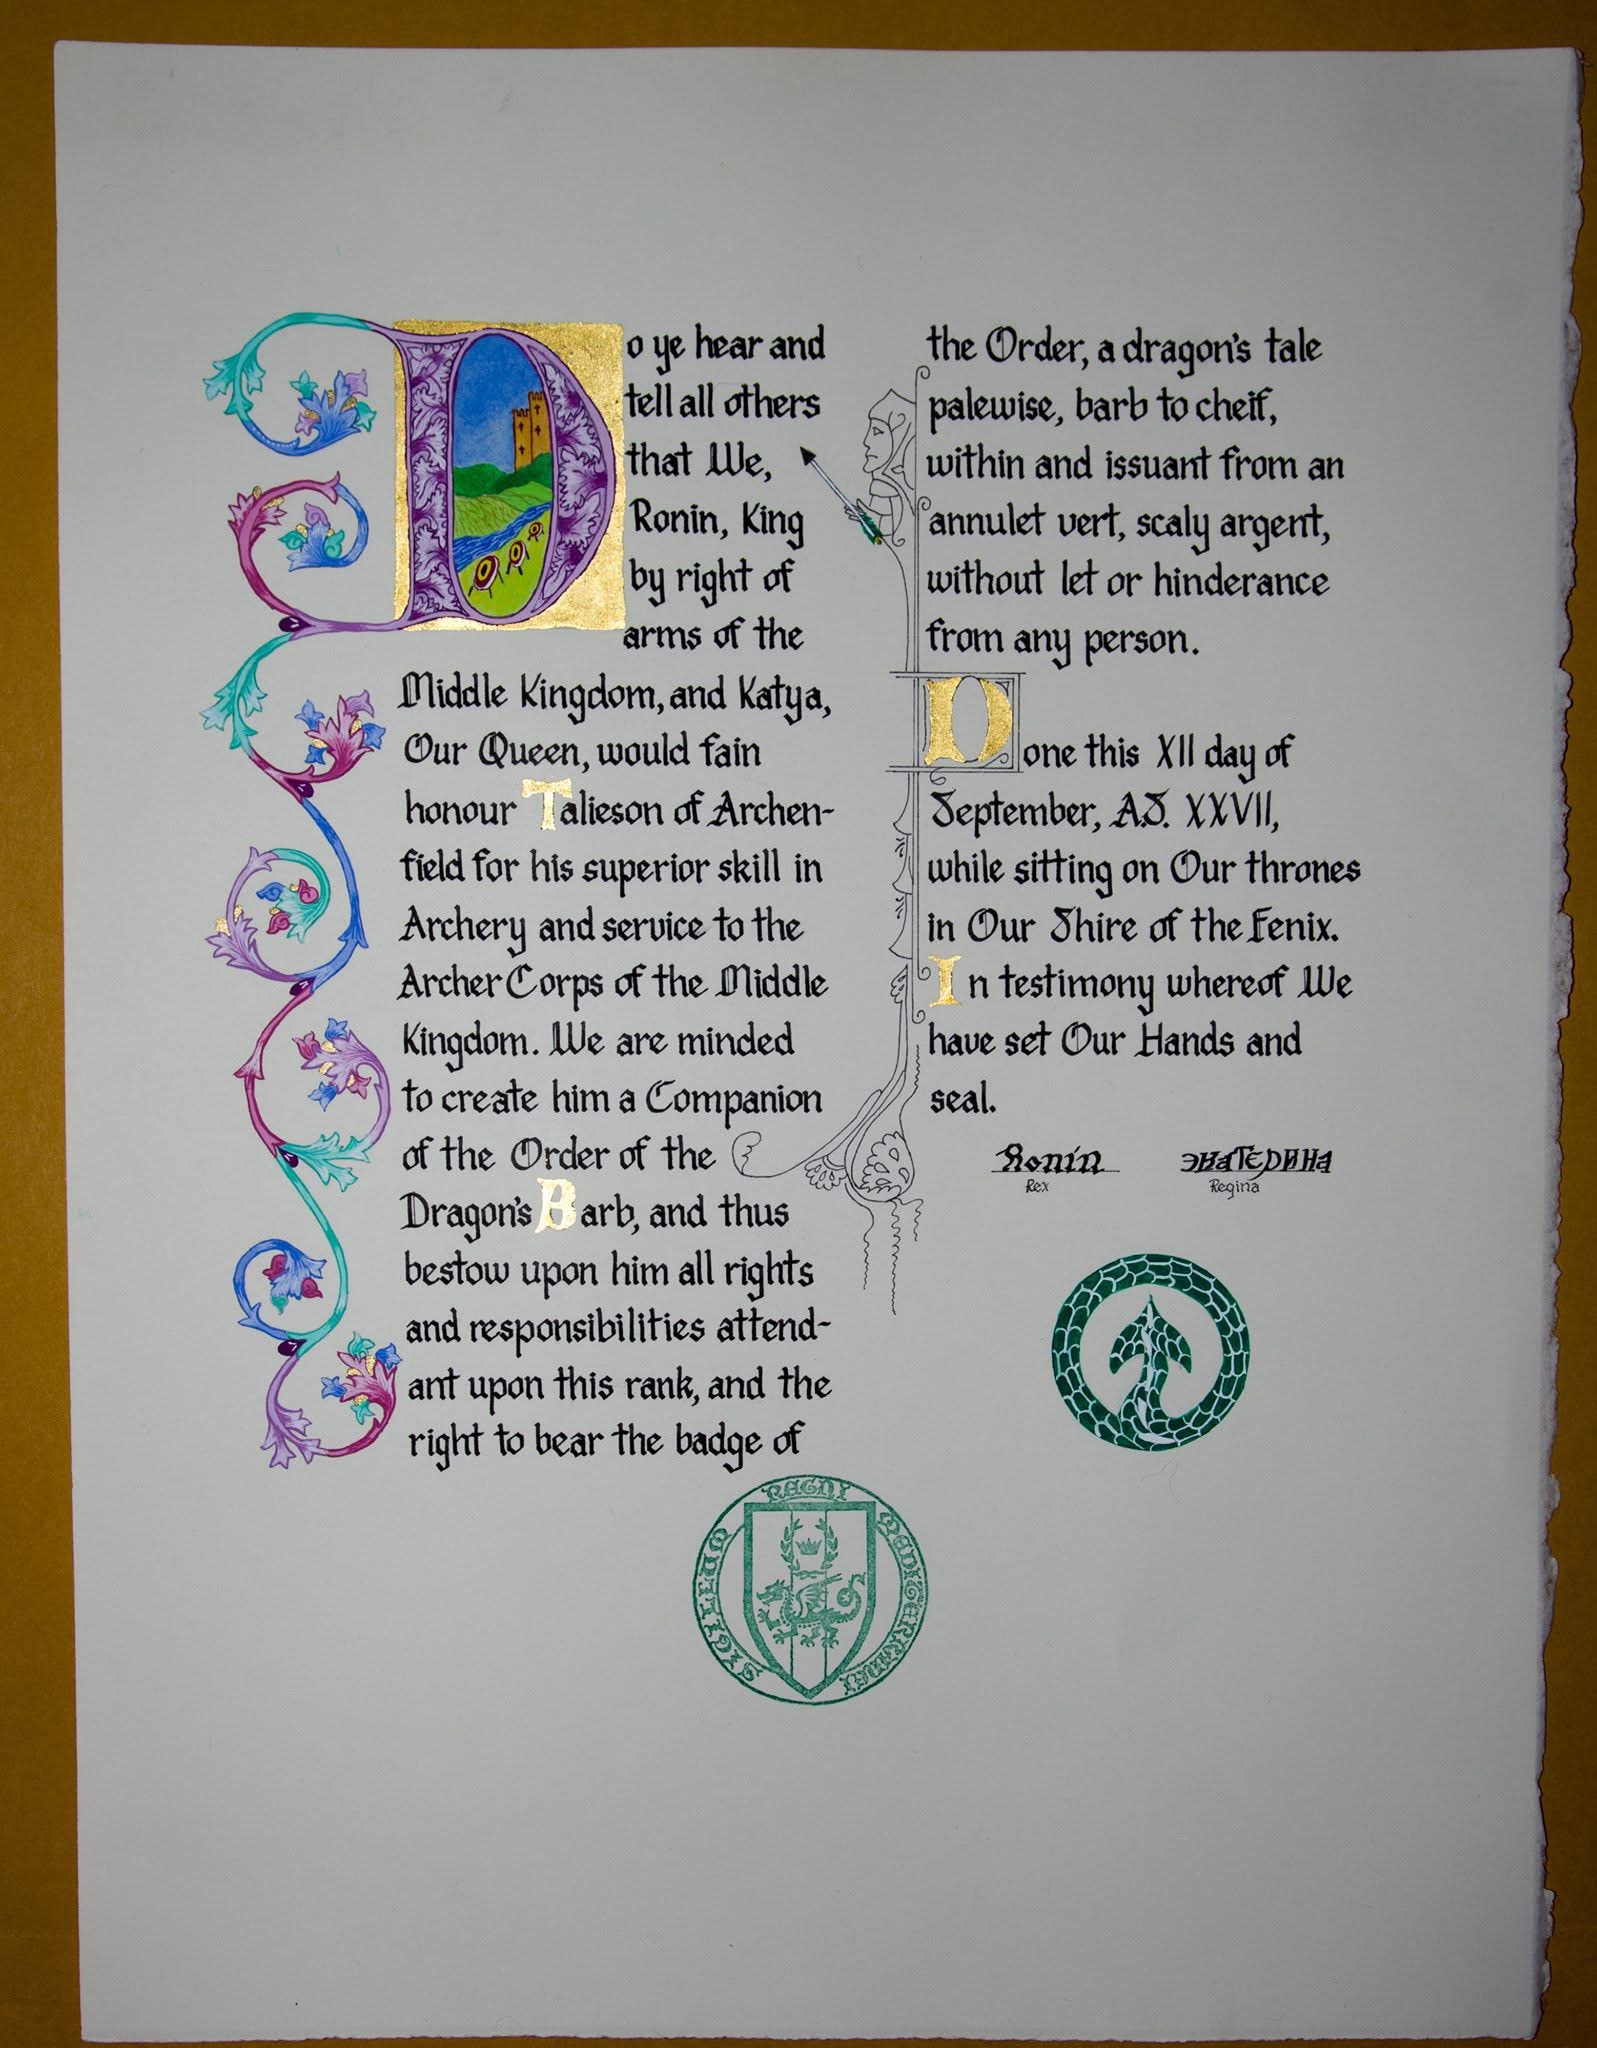 Do ye hear and
tell all others
that We,
Ronin, King
by right of
arms of the
Middle Kingdom, and Katya,
Our Queen, would fain
honour Talieson of Archen-
field for his superior skill in
Archery and service to the
Archer Corps of the Middle
Kingdom. We are minded
to create him a Companion
of the Order of the
Dragon's Barb, and thus
bestow upon him all rights
and responsibilities attend-
ant upon this rank, and the
right to bear the badge of
the Order, a dragon's tale
palewise, barb to cheif,
within and issuant from an
annulet vert, scaly argent,
without let or hinderance
from any person.
Done this XII day of
September, A.S. XXVII,
while sitting on Our thrones
in Our Shire of the Fenix.
In testimony whereof We
have set Our Hands and
seal.
Ronin ЭКАТЕРИНА
Rex Regina
SIGILLUM REGNI